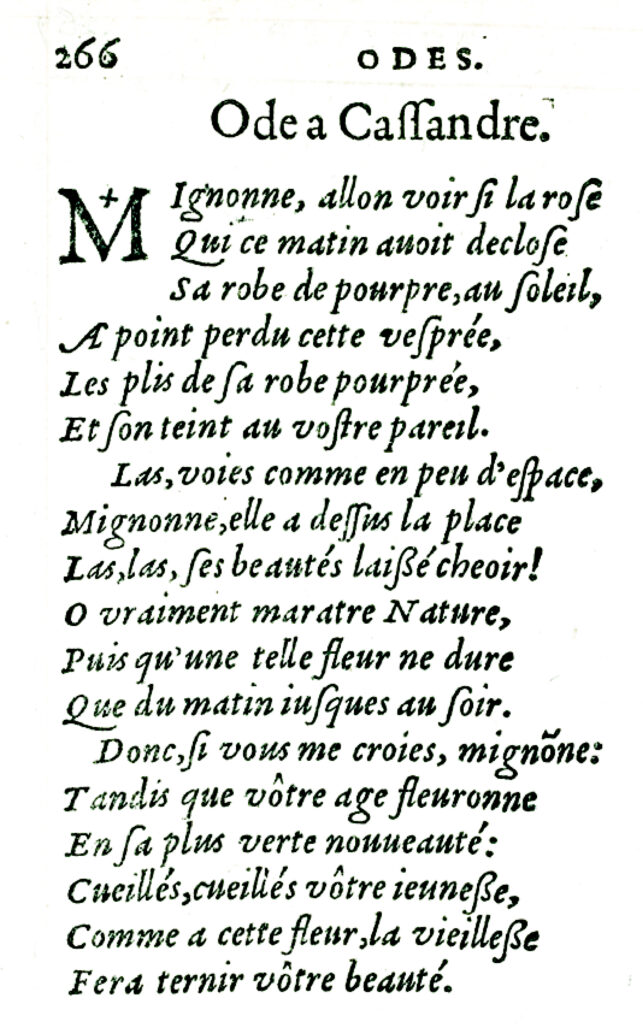 266 ODES.
Ode a Caſſandre.
MIgnonne, allon voir ſi la roſe
Qui ce matin auoit decloſe
Sa robe de pourpre, au ſoleil,
A point perdu cette veſprée,
Les plis de ſa robe pourprée,
Et ſon teint au voſtre pareil.
Las, voies comme en peu d'eſpace,
Mignonne, elle a deſſus la place
Las, las, ſes beautés laißé cheoir!
O vraiment maratre Nature,
Puis qu'une telle fleur ne dure
Que du matin iuſques au ſoir.
Donc, ſi vous me croies, mignõne:
Tandis que vôtre age fleuronne
En ſa plus verte nouueauté:
Cueillés, cueillés vôtre ieuneße,
Comme a cette fleur, la vieilleße
Fera ternir vôtre beauté.